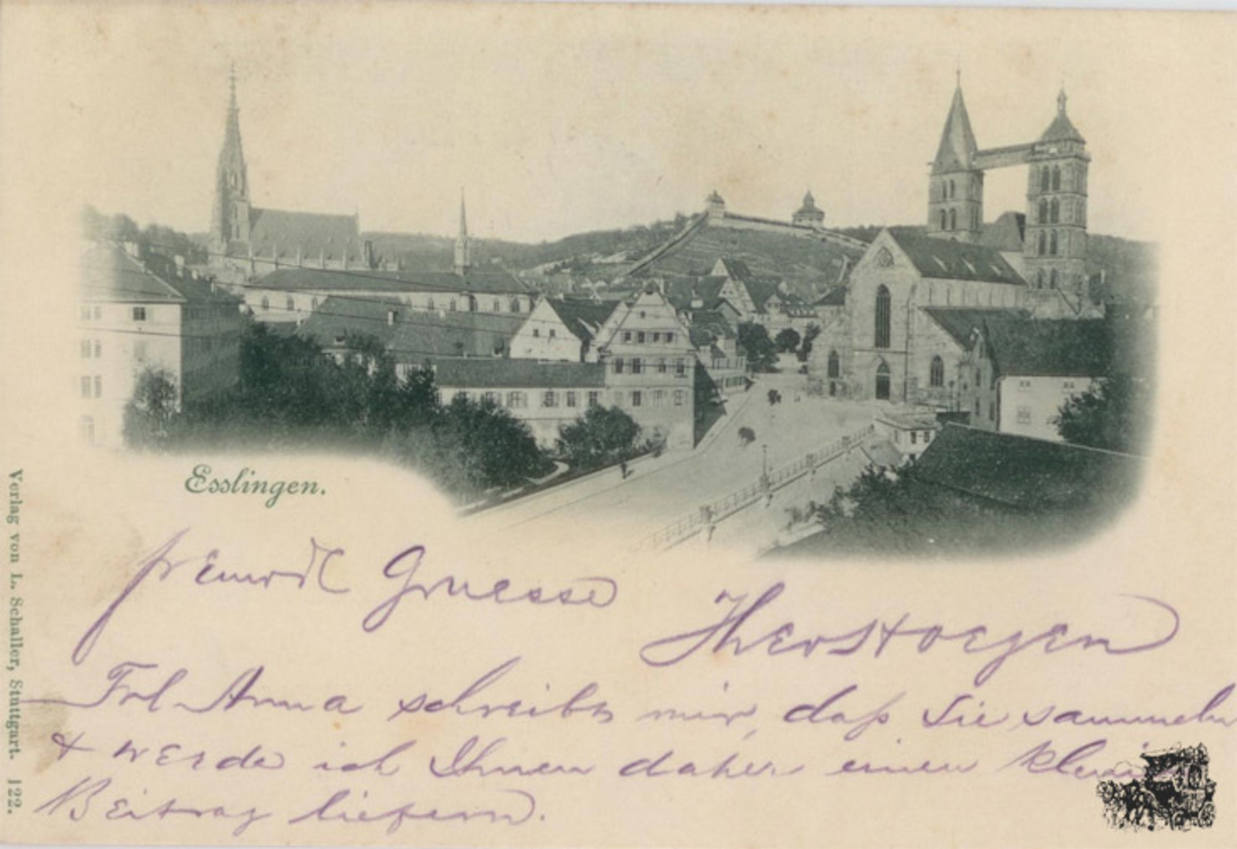 Esslingen.
Verlag von L. Schaller, Stuttgart. 122.
freundl Gruesse
Frl Anna schreibt mir, daß Sie sammeln
& werde ich Ihnen daher einen kleinen
Beitrag liefern.